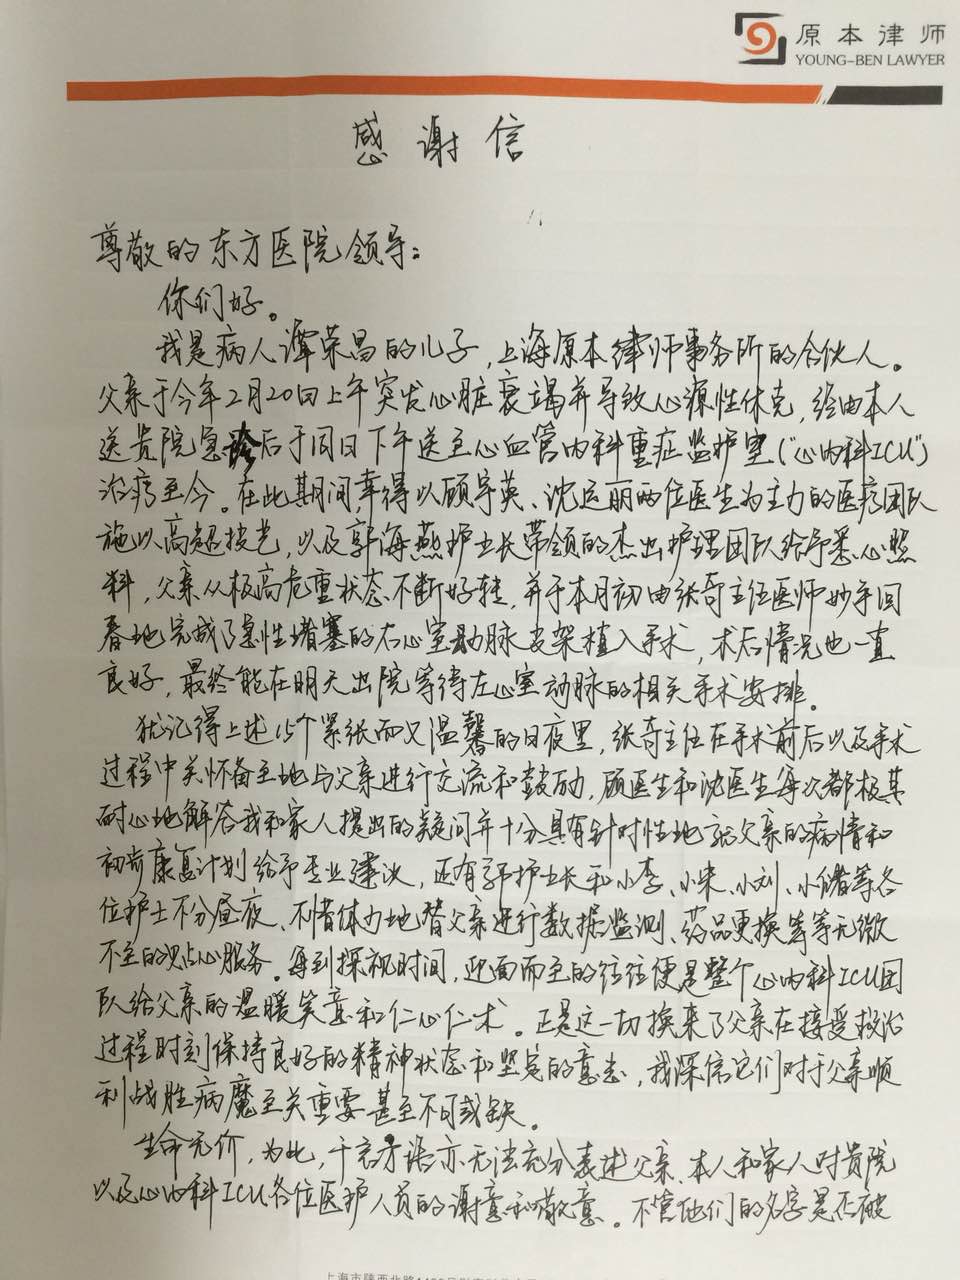 原本律师
YOUNG-BEN LAWYER
感谢信
尊敬的东方医院领导：
你们好。
我是病人谭荣昌的儿子，上海原本律师事务所的合伙人。
父亲于今年2月20日上午突发心脏衰竭并导致心源性休克，经由本人
送贵院急诊后于同日下午送至心血管内科重症监护室（“心内科ICU”）
治疗至今。在此期间，幸得以顾宇英、沈运丽两位医生为主力的医疗团队
施以高超技艺，以及郭海燕护士长带领的杰出护理团队给予悉心照
料，父亲从极高危重状态不断好转，并于本月初由张奇主任医师妙手回
春地完成了急性堵塞的右心室动脉支架植入手术，术后情况也一直
良好，最终能在明天出院等待左心室动脉的相关手术安排。
犹记得上述15个紧张而又温馨的日夜里，张奇主任在手术前后以及手术
过程中关怀备至地与父亲进行交流和鼓励，顾医生和沈医生每次都极其
耐心地解答我和家人提出的疑问并十分具有针对性地就父亲的病情和
初步康复计划给予专业建议，还有郭护士长和小李、小宋、小刘、小储等各
位护士不分昼夜、不惜体力地替父亲进行数据监测、药品更换等等无微
不至的贴心服务。每到探视时间，迎面而至的往往便是整个心内科ICU团
队给父亲的温暖笑意和仁心仁术。正是这一切换来了父亲在接受救治
过程时刻保持良好的精神状态和坚定的意志，我深信它们对于父亲顺
利战胜病魔至关重要甚至不可或缺。
生命无价，为此，千言万语亦无法充分表述父亲、本人和家人对贵院
以及心内科ICU各位医护人员的谢意和敬意。不管他们的名字是否被